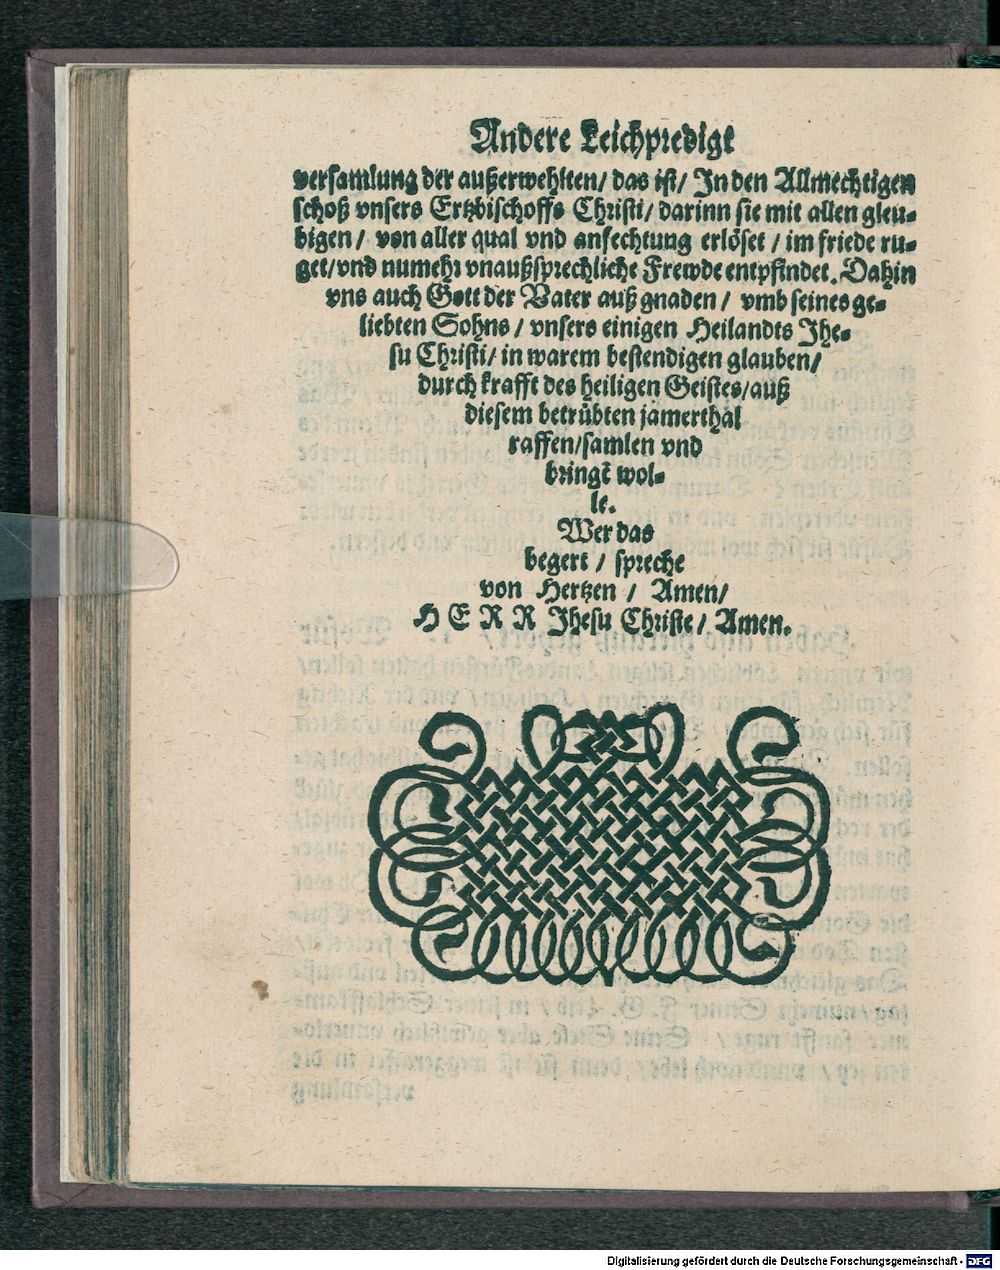 Andere Leichpredigt
versamlung der außerwehlten/ das ist/ In den Allmechtigen
schoß vnsers Ertzbischoffs Christi/ darinn sie mit allen gleu-
bigen/ von aller qual vnd anfechtung erlöset/ im friede ru-
get/vnd numehr vnaußsprechliche Frewde entpfindet. Dahin
vns auch Gott der Vater auß gnaden/ vmb seines ge-
liebten Sohns/ vnsers einigen Heilandts Jhe-
su Christi/ in warem bestendigen glauben/
durch krafft des heiligen Geistes/auß
diesem betrübten jamerthal
raffen/samlen vnd
bringē wol-
le.
Wer das
begert/ spreche
von Hertzen/ Amen/
HERR Jhesu Christe/ Amen.
Digitalisierung gefördert durch die Deutsche Forschungsgemeinschaft - DFG